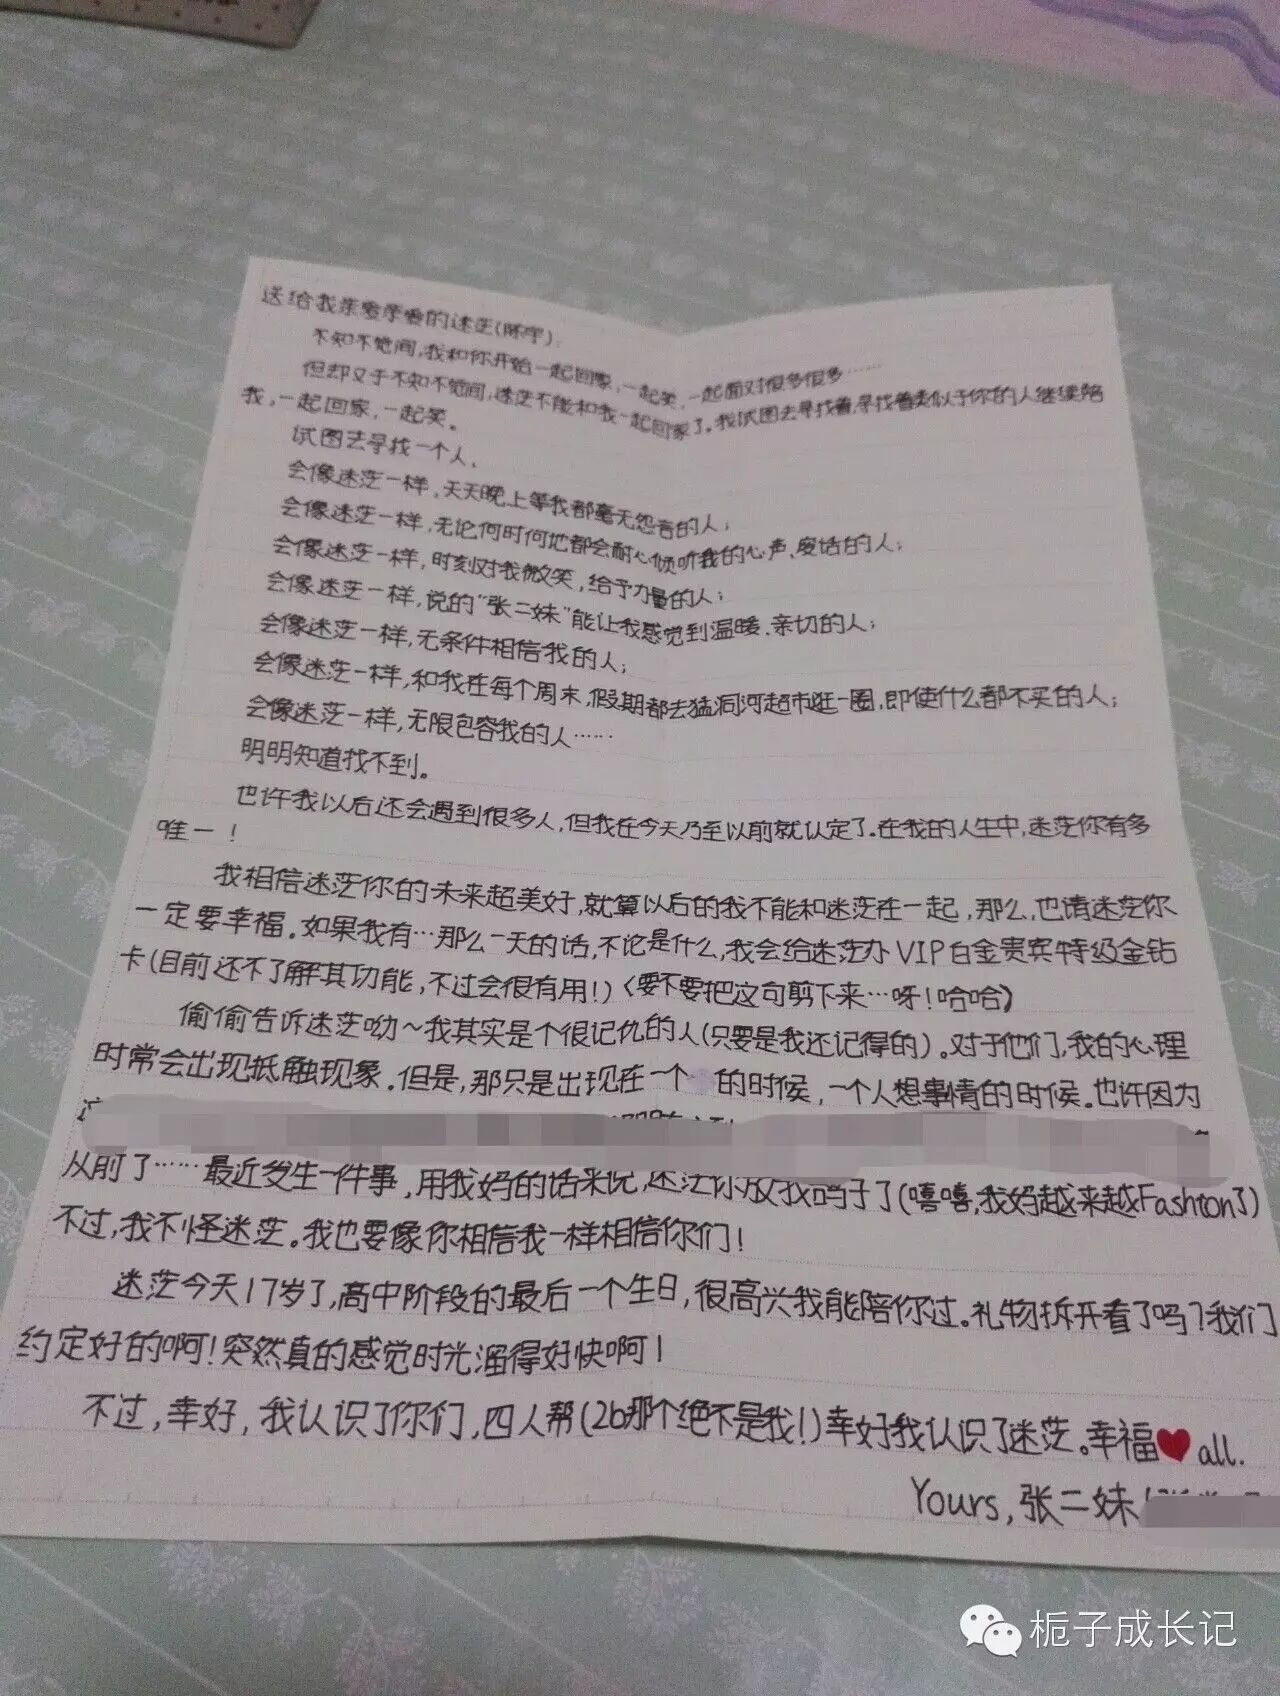 送给我亲爱亲爱的迷茫(陈宇):
不知不觉间,我和你开始一起回家,一起笑,一起面对很多很多……
但却又于不知不觉间,迷茫不能和我一起回家了。我试图去寻找着,寻找着类似于你的人继续陪
我,一起回家,一起笑。
试图去寻找一个人,
会像迷茫一样,天天晚上等我都毫无怨言的人;
会像迷茫一样,无论何时何地都会耐心倾听我的心声、废话的人;
会像迷茫一样,时刻对我微笑,给予力量的人;
会像迷茫一样,说的“张二妹”能让我感觉到温暖、亲切的人;
会像迷茫一样,无条件相信我的人;
会像迷茫一样,和我在每个周末,假期都去猛洞河超市逛一圈,即使什么都不买的人;
会像迷茫一样,无限包容我的人……
明明知道找不到。
也许我以后还会遇到很多人,但我在今天乃至以前就认定了。在我的人生中,迷茫你有多
唯一!
我相信迷茫你的未来超美好,就算以后的我不能和迷茫在一起,那么,也请迷茫你
一定要幸福。如果我有…那么一天的话,不论是什么,我会给迷茫办VIP白金贵宾特级金钻
卡(目前还不了解其功能,不过会很有用!)(要不要把这句剪下来…呀!哈哈)
偷偷告诉迷茫呦~我其实是个很记仇的人(只要是我还记得的)。对于他们,我的心理
时常会出现抵触现象。但是,那只是出现在一个的时候,一个人想事情的时候。也许因为
从前了……最近发生一件事,用我妈的话来说,迷茫你放我鸽子了(嘻嘻,我妈越来越Fashion了)
不过,我不怪迷茫。我也要像你相信我一样相信你们!
迷茫今天17岁了,高中阶段的最后一个生日,很高兴我能陪你过。礼物拆开看了吗?我们
约定好的啊!突然真的感觉时光溜得好快啊!
不过,幸好,我认识了你们,四人帮(2b那个绝不是我!)幸好我认识了迷茫。幸福❤all.
Yours,张二妹
栀子成长记